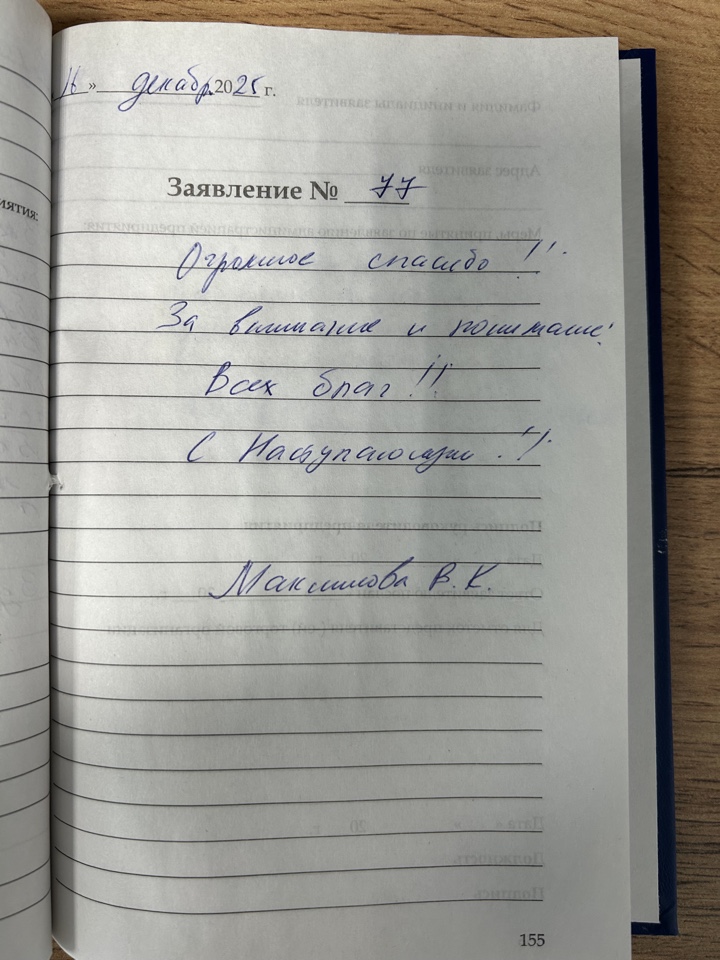 16 » декабр 2025 г.
Заявление № 77
иятия:
Огромное спасибо !!
За внимание и понимание!
Всех благ !!
С Наступающим !!
Максимова В. К.
155